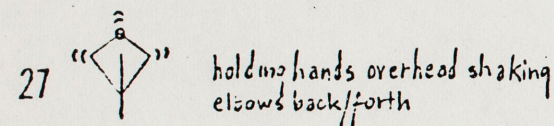 27 holding hands overhead shaking
elbows back/forth